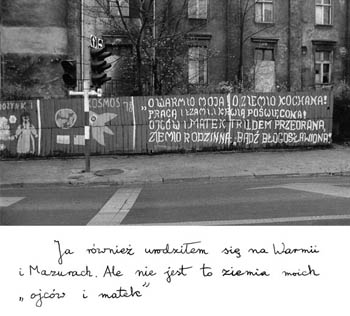 KOSMOS 78
„O WARMIO MOJA! O ZIEMIO KOCHANA!
PRACĄ I ŁZAMI, KRWIĄ POŚWIĘCONA!
OJCÓW I MATEK TRUDEM PRZEORANA
ZIEMIO RODZINNA, BĄDŹ BŁOGOSŁAWIONA!"
Ja również urodziłem się na Warmii
i Mazurach. Ale nie jest to ziemia moich
„ojców i matek"